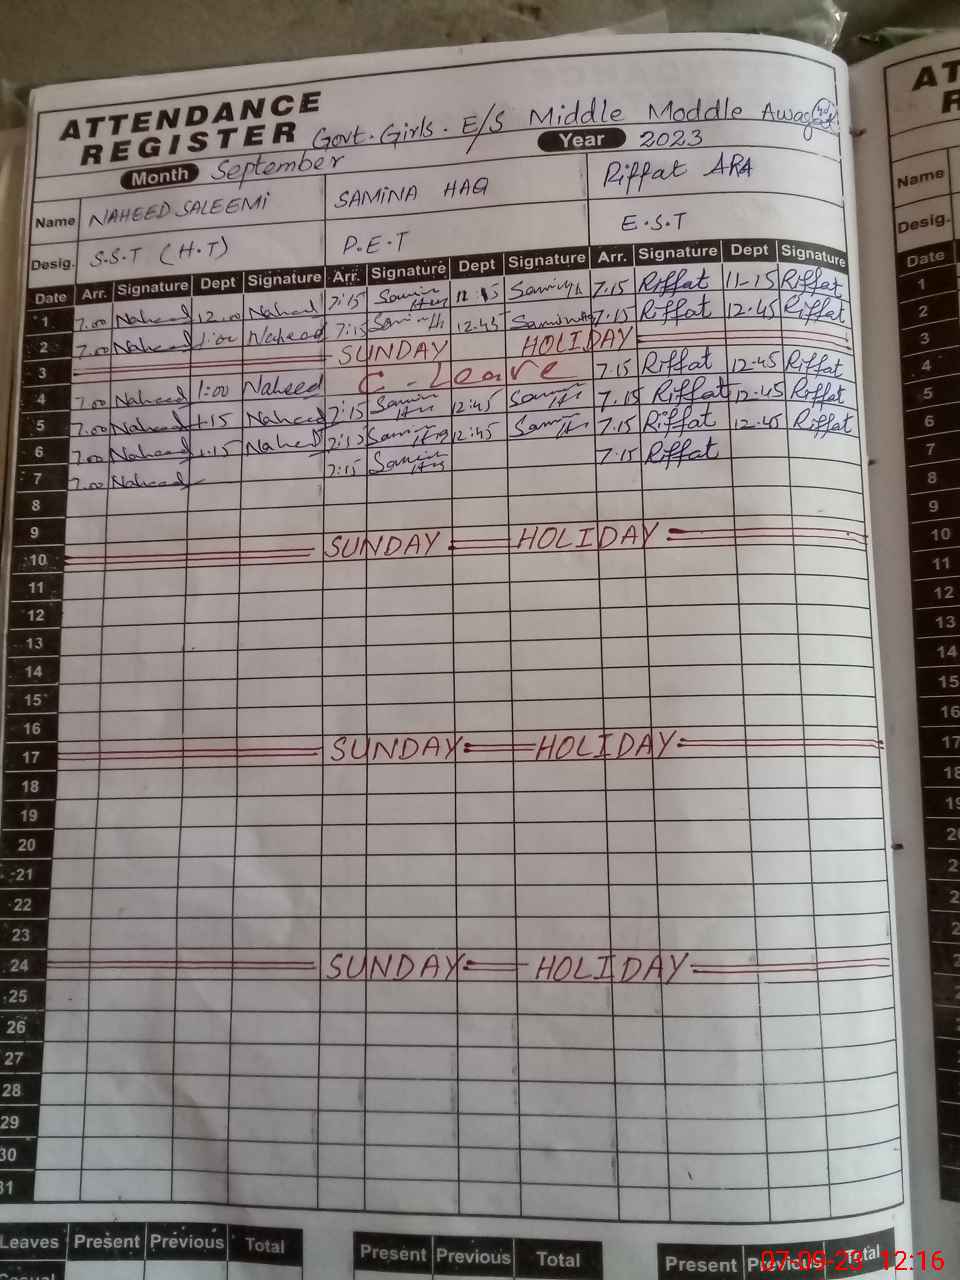 ATTENDANCE
REGISTER Govt. Girls. E/S Middle Moddle
Month September Year 2023
Name NAHEED SALEEMI SAMINA HAQ Riffat ARA
Desig. S.S.T (H.T) P.E.T E.S.T
Date Arr. Signature Dept Signature Arr. Signature Dept Signature Arr. Signature Dept Signature
1 7.00 Naheed 12.00 Naheed 7:15 12:15 7.15 Riffat 11-15 Riffat
2 7.00 Naheed 1:00 Naheed 7:15 12:45 7.15 Riffat 12.45 Riffat
3 SUNDAY HOLIDAY
4 7.00 Naheed 1:00 Naheed C - Leave 7.15 Riffat 12-45 Riffat
5 7.00 Naheed 1.15 Naheed 7:15 12:45 7.15 Riffat 12-45 Riffat
6 7.00 Naheed 1.15 Naheed 7:15 12:45 7.15 Riffat 12.45 Riffat
7 7.00 Naheed 7:15 7.15 Riffat
8
9
10 SUNDAY HOLIDAY
11
12
13
14
15
16
17 SUNDAY HOLIDAY
18
19
20
21
22
23
24 SUNDAY HOLIDAY
25
26
27
28
29
30
31
Leaves Present Previous Total Present Previous Total Present Previous Total
07-09-23 12:16
AT
R
Name
Desig.
Date
1
2
3
4
5
6
7
8
9
10
11
12
13
14
15
16
17
18